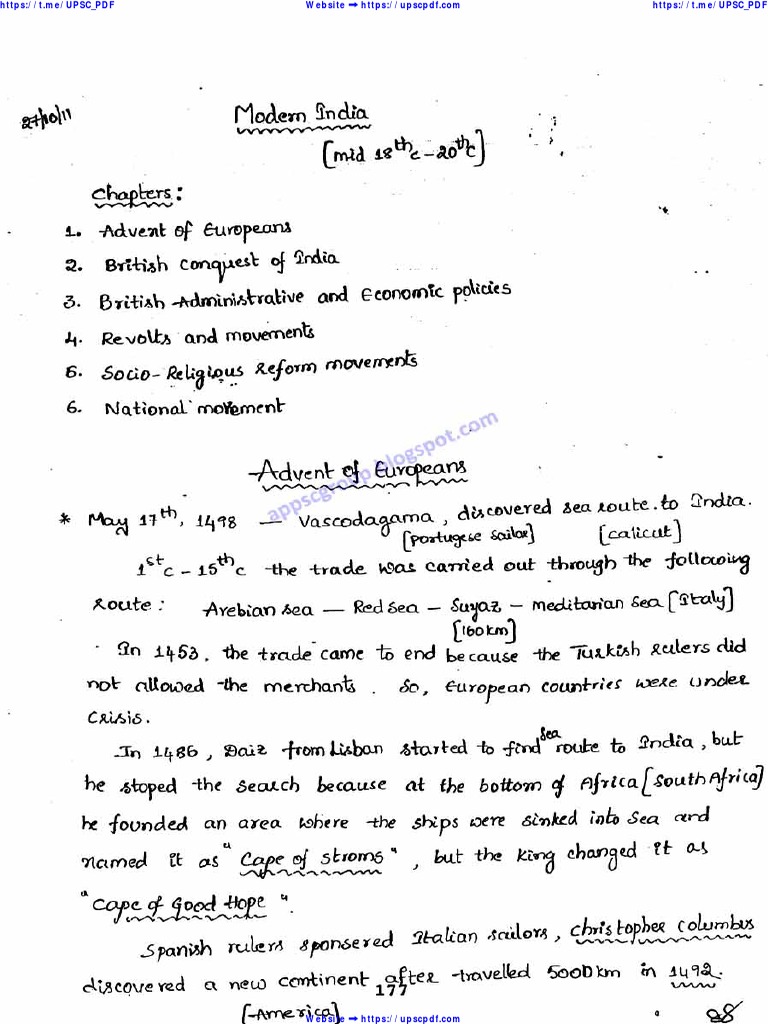 https://t.me/UPSC_PDF Website ➞ https://upscpdf.com https://t.me/UPSC_PDF
27/10/11
Modern India
[mid 18th c - 20th c]
Chapters:
1. Advent of Europeans
2. British conquest of India
3. British Administrative and Economic policies
4. Revolts and movements
5. Socio-Religious Reform movements
6. National movement
appscgroup.blogspot.com
Advent of Europeans
* May 17th, 1498 — Vascodagama, discovered sea route to India.
[portugese sailor] [calicut]
1st c - 15th c the trade was carried out through the following
Route: Arebian sea — Red sea - Suyaz - meditarian sea [Italy]
[160km]
In 1453, the trade came to end because the Turkish rulers did
not allowed the merchants. So, European countries were under
crisis.
In 1486, Daiz from Lisban started to find sea route to India, but
he stoped the search because at the bottom of Africa [South Africa]
he founded an area where the ships were sinked into sea and
named it as "Cape of stroms", but the king changed it as
"Cape of Good Hope".
Spanish rulers sponsered Italian sailors, christopher columbus
discovered a new continent after travelled 5000km in 1492.
177
[America]
Website ➞ https://upscpdf.com